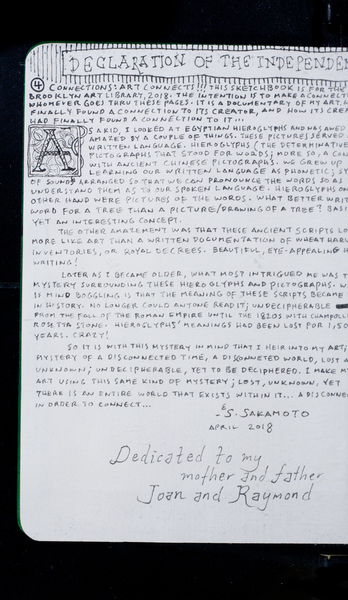 DECLARATION OF THE INDEPENDEN
④ CONNECTIONS: ART CONNECTS!!! THIS SKETCHBOOK IS FOR THE
BROOKLYN ART LIBRARY, 2018. THE INTENTION IS TO MAKE A CONNECTI
WHOMEVER GOES THRU THESE PAGES. IT IS A DOCUMENTARY OF MY ART,
FINALLY FOUND A CONNECTION TO ITS CREATOR, AND HOW ITS CREA
HAD FINALLY FOUND A CONNECTION TO IT...
AS A KID, I LOOKED AT EGYPTIAN HIEROGLYPHS AND WAS AWED
AMAZED BY A COUPLE OF THINGS. THESE PICTURES SERVED
WRITTEN LANGUAGE. HIEROGLYPHS (THE DETERMINATIVE
PICTOGRAPHS THAT STOOD FOR WORDS; MORE SO, A COU
WITH ANCIENT CHINESE PICTOGRAPHS. WE GREW UP
LEARNING OUR WRITTEN LANGUAGE AS PHONETICS; SY
OF SOUNDS ARRANGED SO THAT WE CAN PRONOUNCE THE WORDS SO AS
UNDERSTAND THEM AS TO OUR SPOKEN LANGUAGE. HIEROGLYPHS ON
OTHER HAND WERE PICTURES OF THE WORDS. WHAT BETTER WRIT
WORD FOR A TREE THAN A PICTURE/DRAWING OF A TREE? BASI
YET AN INTERESTING CONCEPT.
THE OTHER AMAZEMENT WAS THAT THESE ANCIENT SCRIPTS LO
MORE LIKE ART THAN A WRITTEN DOCUMENTATION OF WHEAT HARV
INVENTORIES, OR ROYAL DECREES. BEAUTIFUL, EYE-APPEALING H
WRITING!
LATER AS I BECAME OLDER, WHAT MOST INTRIGUED ME WAS T
MYSTERY SURROUNDING THESE HIEROGLYPHS AND PICTOGRAPHS. W
IS MIND BOGGLING IS THAT THE MEANING OF THESE SCRIPTS BECAME
IN HISTORY. NO LONGER COULD ANYONE READ IT; UNDECIPHERABLE
FROM THE FALL OF THE ROMAN EMPIRE UNTIL THE 1820S WITH CHAMPOLL
ROSETTA STONE. HIEROGLYPHS' MEANINGS HAD BEEN LOST FOR 1,50
YEARS. CRAZY!
SO IT IS WITH THIS MYSTERY IN MIND THAT I HEIR INTO MY ART;
MYSTERY OF A DISCONNECTED TIME, A DISCONNETED WORLD, LOST A
UNKNOWN; UNDECIPHERABLE, YET TO BE DECIPHERED. I MAKE M
ART USING THIS SAME KIND OF MYSTERY; LOST, UNKNOWN, YET
THERE IS AN ENTIRE WORLD THAT EXISTS WITHIN IT... A DISCONNE
IN ORDER TO CONNECT...
S. SAKAMOTO
APRIL 2018
Dedicated to my
mother and father
Joan and Raymond